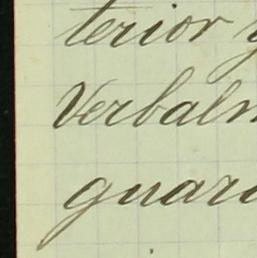 terior y
Verbalm
guard